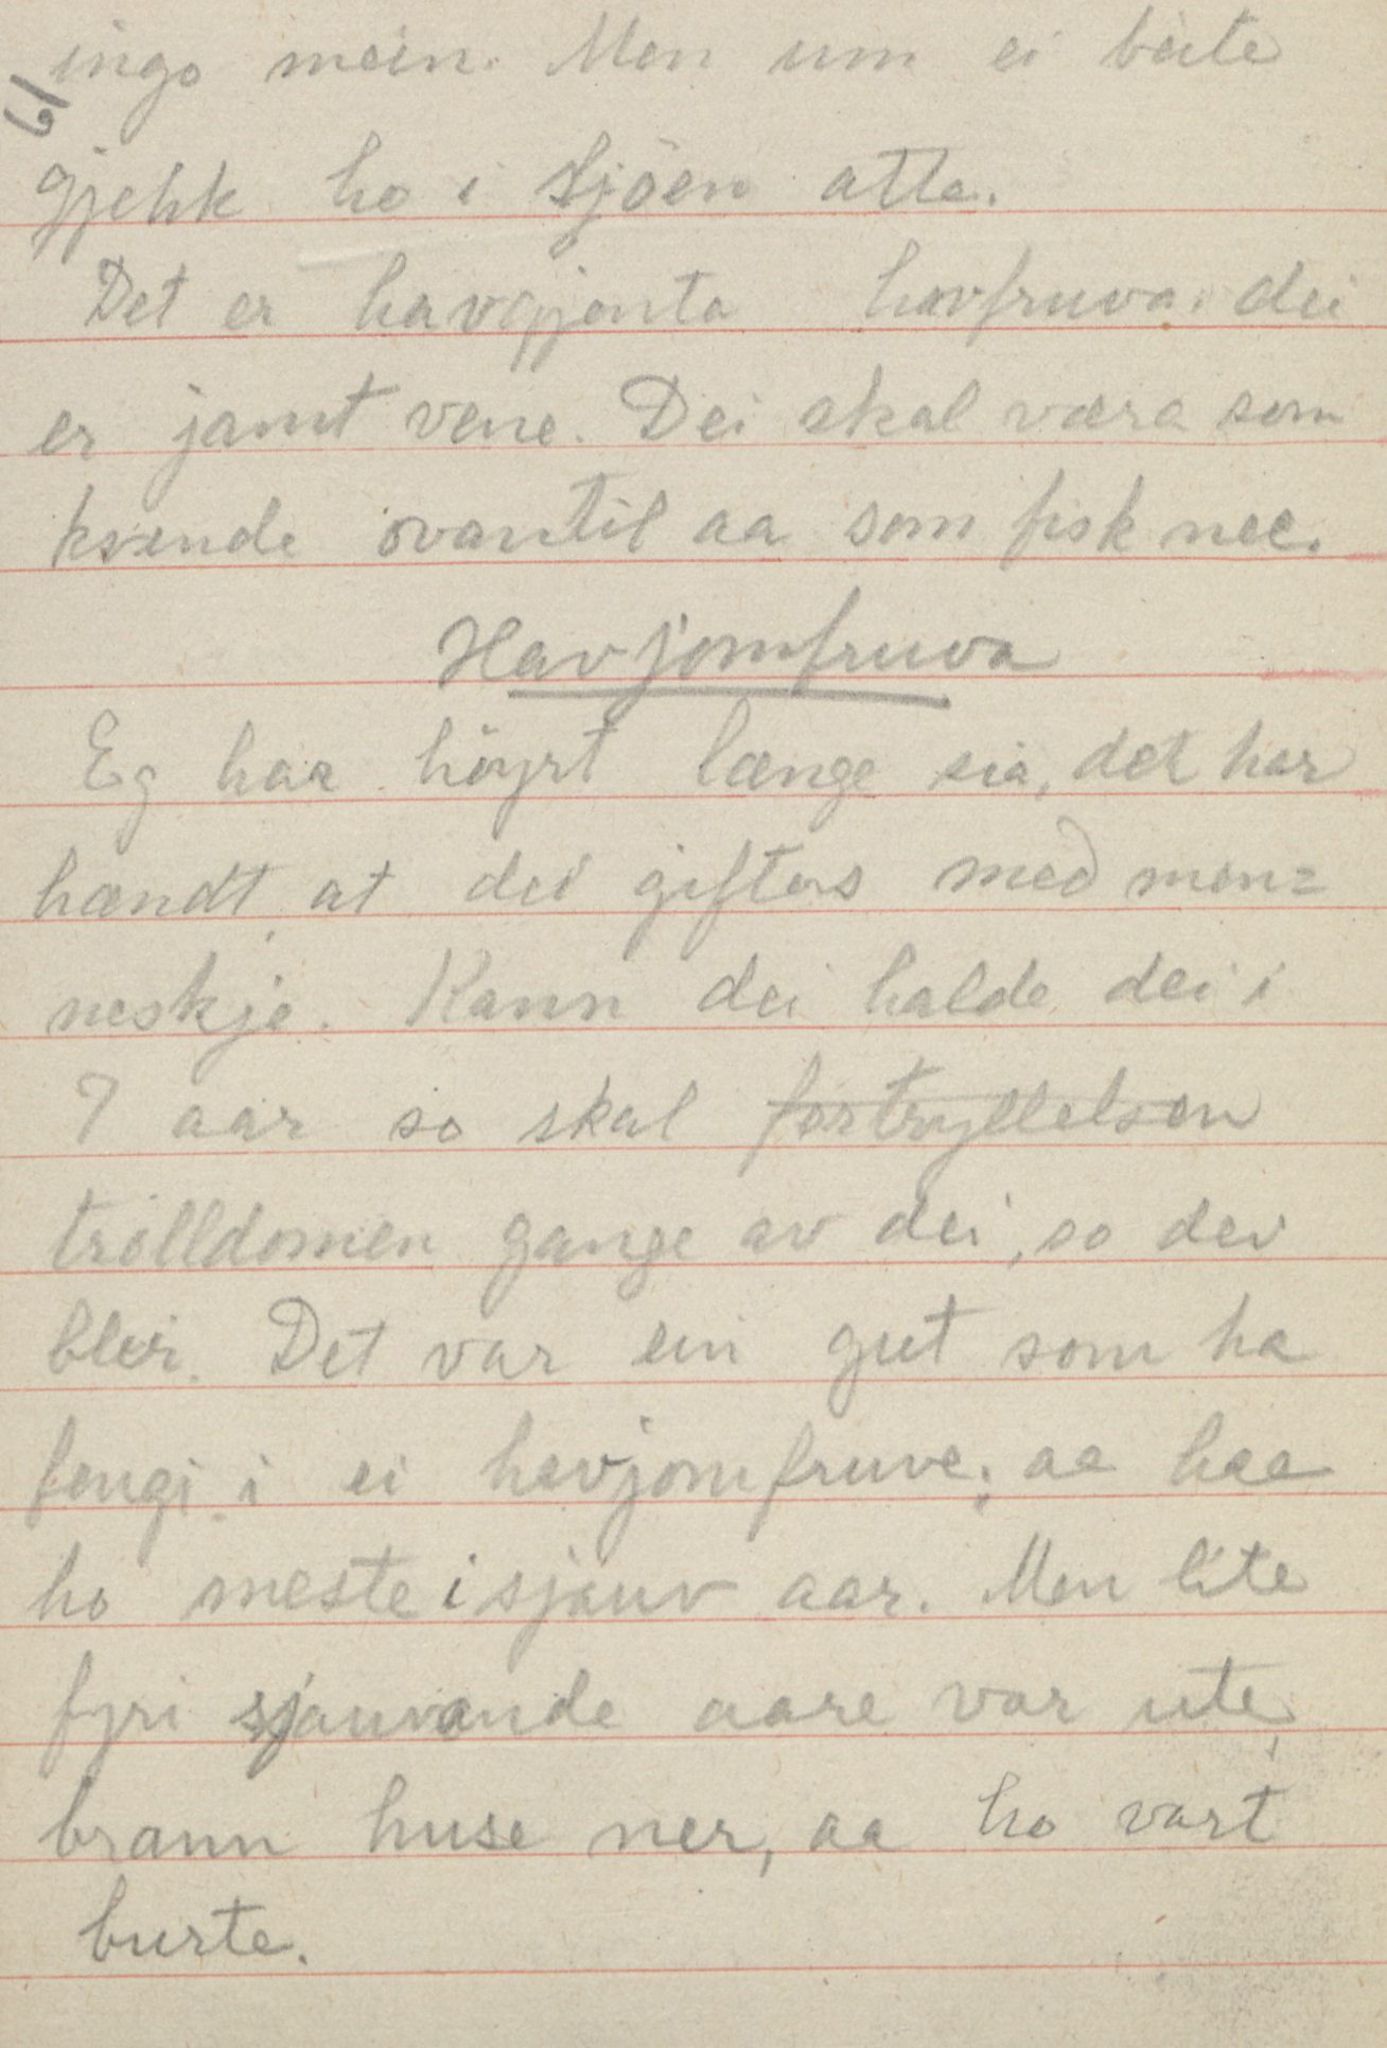 61
ingo mein. Men um ei beite
gjekk ho i sjöen atte.
Det er havgjenta havfruva. dei
er jamt vene. Dei skal væra som
kvende ovantil aa som fisk nee.
Havjomfruva
Eg har höyrt længe sia, det har
hændt at dei giftas med men=
neskje. Kann dei halde dei i
7 aar so skal fortryllelsen
trolldomen gange av dei, so dei
bleir. Det var ein gut som ha
fengi i ei havjomfruve; aa hae
ho meste i sjauv aar. Men lite
fyri sjauvande aare var ute,
brann huse ner, aa ho vart
burte.